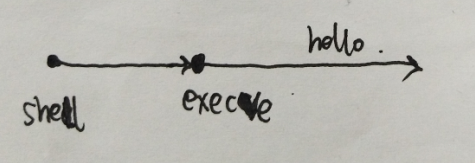 hello.
shell
execve